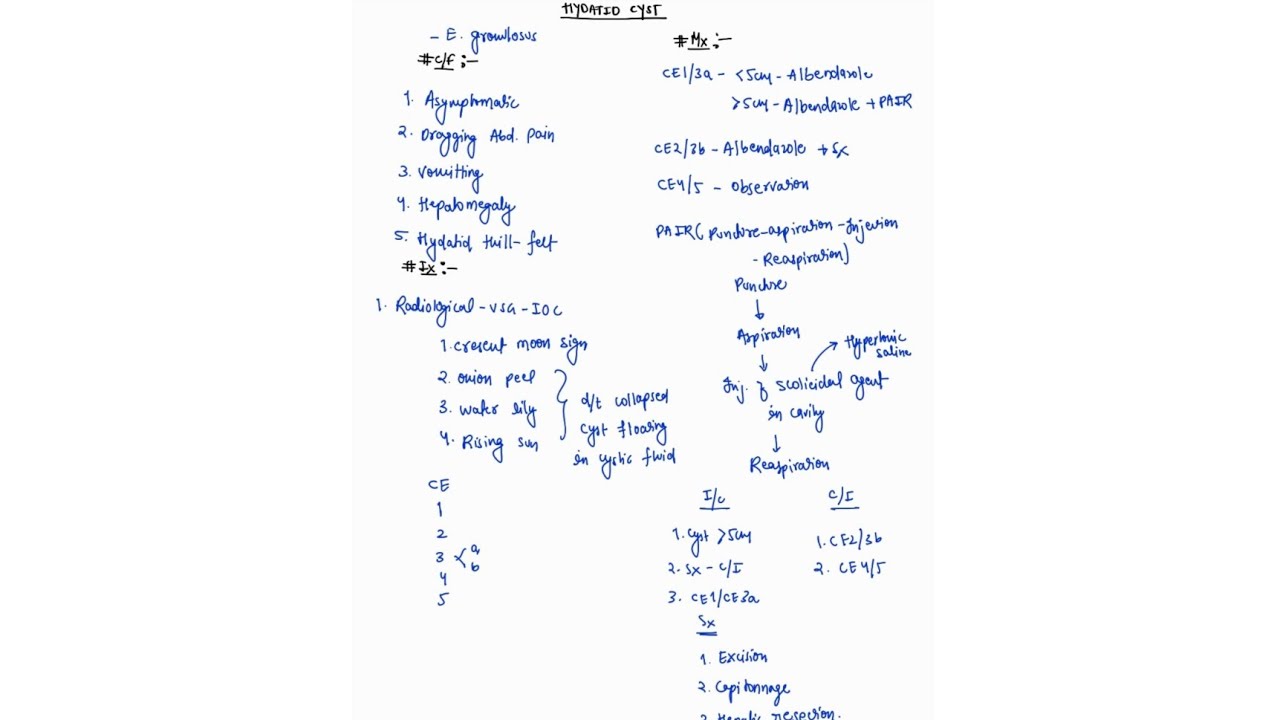 HYDATID CYST
- E. granulosus
#C/f :-
1. Asymptomatic
2. Dragging Abd. Pain
3. Vomitting
4. Hepatomegaly
5. Hydatid thrill - felt
#Ix :-
1. Radiological - USG - IOC
1. Crescent moon sign
2. onion peel
3. water lily
4. Rising sun
d/t collapsed
cyst floating
in cystic fluid
CE
1
2
3 < a
b
4
5
#Mx :-
CE1/3a - <5cm - Albendazole
>5cm - Albendazole + PAIR
CE2/3b - Albendazole + Sx
CE4/5 - Observation
PAIR (Puncture-aspiration-Injection
- Reaspiration)
Puncture
↓
Aspiration
↓
Inj. of scolicidal agent → Hypertonic
saline
in cavity
↓
Reaspiration
I/c
1. Cyst >5cm
2. Sx - C/I
3. CE1/CE3a
C/I
1. CE2/3b
2. CE4/5
Sx
1. Excision
2. Capitonnage
3. Hepatic resection.